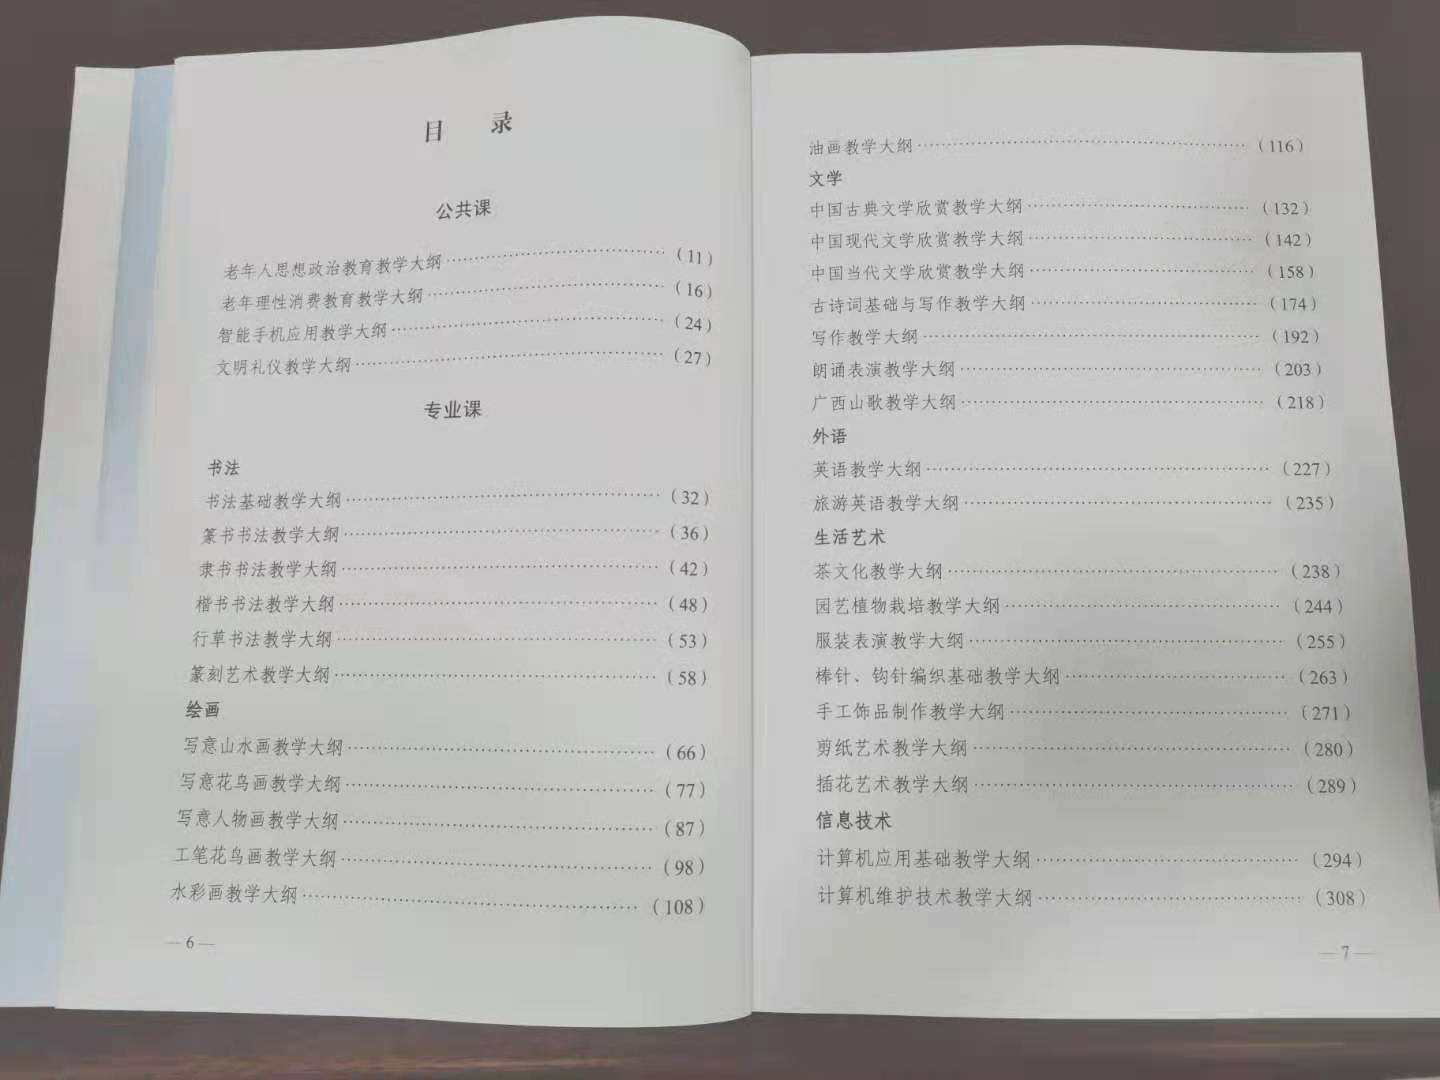 目 录
公共课
老年人思想政治教育教学大纲……………………(11)
老年理性消费教育教学大纲……………………(16)
智能手机应用教学大纲……………………(24)
文明礼仪教学大纲……………………(27)
专业课
书法
书法基础教学大纲……………………(32)
篆书书法教学大纲……………………(36)
隶书书法教学大纲……………………(42)
楷书书法教学大纲……………………(48)
行草书法教学大纲……………………(53)
篆刻艺术教学大纲……………………(58)
绘画
写意山水画教学大纲……………………(66)
写意花鸟画教学大纲……………………(77)
写意人物画教学大纲……………………(87)
工笔花鸟画教学大纲……………………(98)
水彩画教学大纲……………………(108)
— 6 —
油画教学大纲……………………(116)
文学
中国古典文学欣赏教学大纲……………………(132)
中国现代文学欣赏教学大纲……………………(142)
中国当代文学欣赏教学大纲……………………(158)
古诗词基础与写作教学大纲……………………(174)
写作教学大纲……………………(192)
朗诵表演教学大纲……………………(203)
广西山歌教学大纲……………………(218)
外语
英语教学大纲……………………(227)
旅游英语教学大纲……………………(235)
生活艺术
茶文化教学大纲……………………(238)
园艺植物栽培教学大纲……………………(244)
服装表演教学大纲……………………(255)
棒针、钩针编织基础教学大纲……………………(263)
手工饰品制作教学大纲……………………(271)
剪纸艺术教学大纲……………………(280)
插花艺术教学大纲……………………(289)
信息技术
计算机应用基础教学大纲……………………(294)
计算机维护技术教学大纲……………………(308)
— 7 —